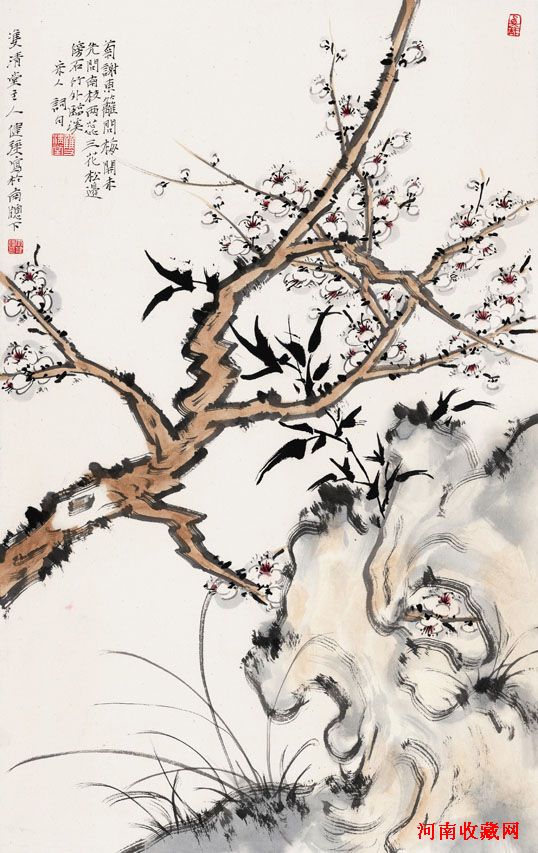 菊謝東籬問梅開未
先問南枝兩蕊三花松邊
傍石竹外臨溪
宋人詞句
雙清堂主人健碧寫於南牕下
河南收藏网